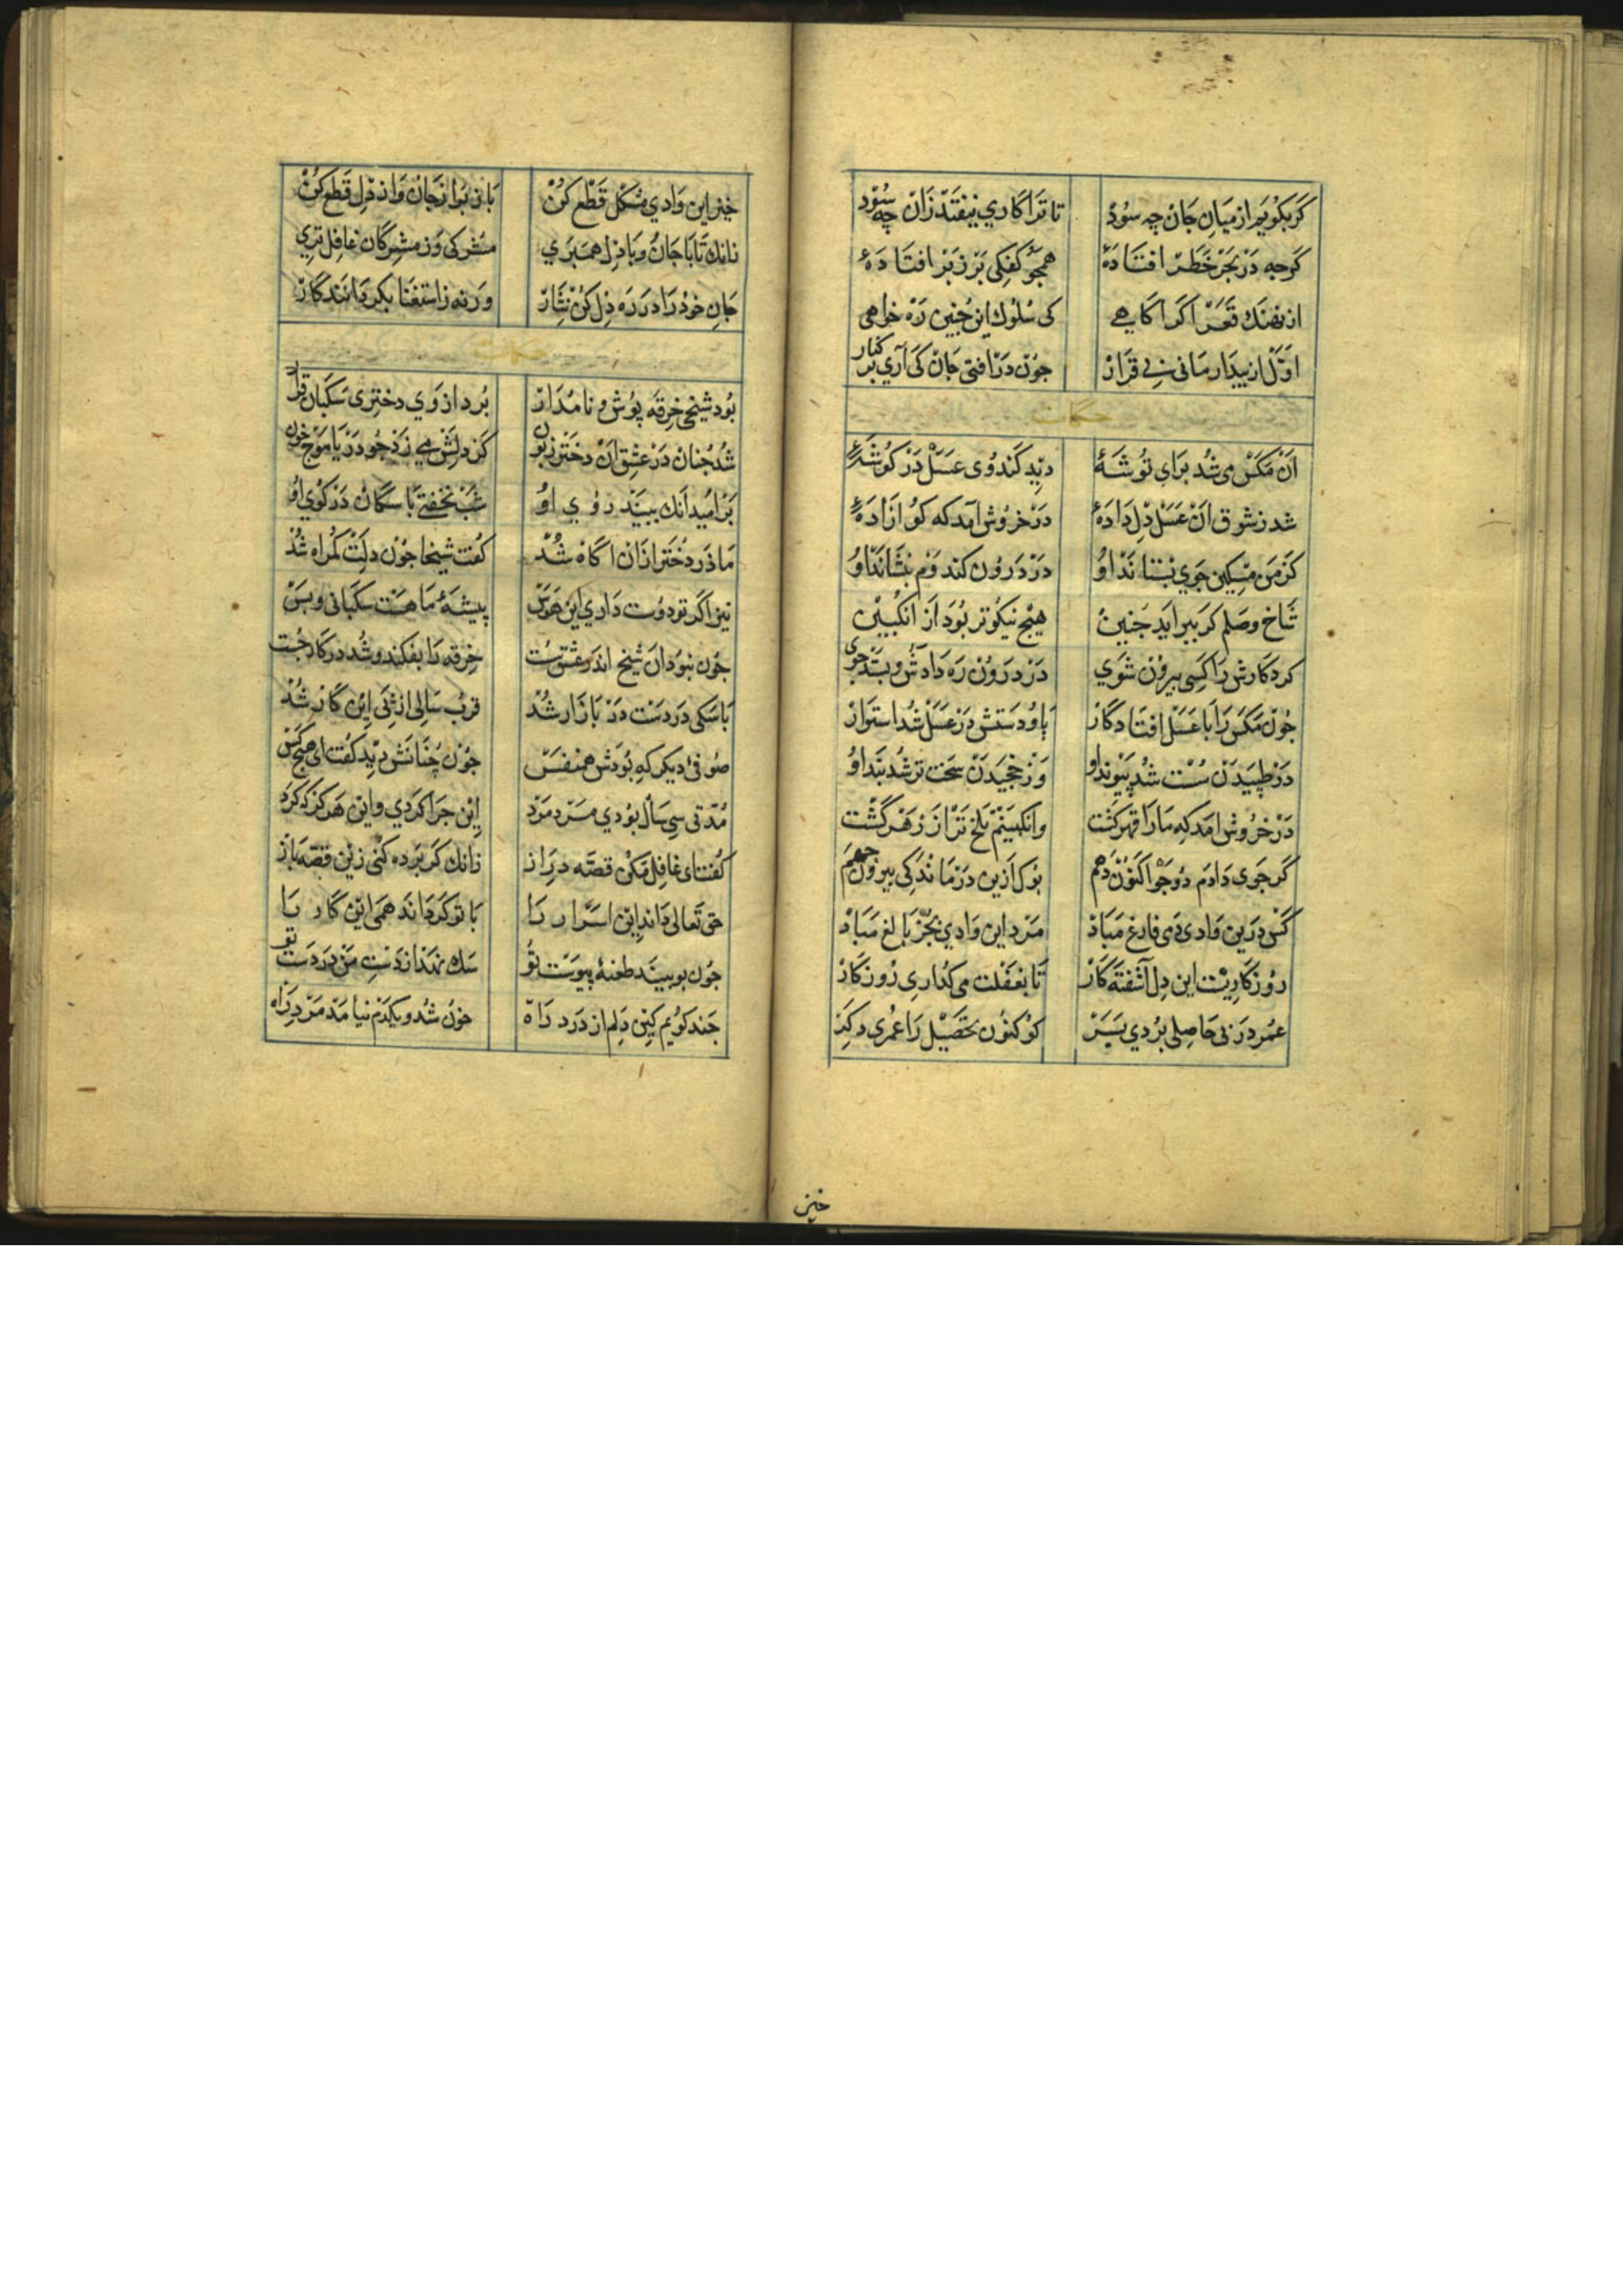 کر بکویم از میان جان چه سود تا ترا کاری نیفتد زان چه سود
کرچه در بحر خطر افتادهٔ همچو کفکی بر زبر افتادهٔ
از نهنک قعر اکر اکاهی کی سلوک این چنین ره خواهی
اول از پیدار مانی بی قرار چون در افتی جان کی آری بر کنار
حکایت
آن مکس می شد برای توشهٔ دید کندوی عسل در کوشهٔ
شد ز شوق آن عسل دل دادهٔ در خروش آمد که کو ازادهٔ
کز من مسکین جوی بستاند او در درون کندوم بنشاند او
شاخ وصلم کر ببر اید چنین هیچ نیکوتر بود از انکبین
کرد کارش را کسی بیرون شوی در درون ره دادش و بستد جوی
چون مکس را با عسل افتاد کار پا و دستش در عسل شد استوار
در طپیدن سست شد پیوند او وز خجیدن سخت تر شد بند او
در خروش امد که ما را قهر کشت وانکبینم تلخ تر از زهر کشت
کر جوی دادم دو جو اکنون دهم بوک ازین درماندکی بیرون جهم
کس درین وادی دمی فارغ مباد مرد این وادی بجز بالغ مباد
روزکاریست این دل آشفته کار تا بغفلت می کذاری روزکار
عمر در بی حاصلی بردی بسر کو کنون تحصیل را عمری دکر
خیز
خیز این وادی مشکل قطع کن باز بر از جان و از دل قطع کن
زانک تا با جان و با دل همبری مشرکی وز مشرکان غافل تری
جان خود را در ره دل کن نثار ورنه ز استغنا بکردانند کار
حکایت
بود شیخی خرقه پوش و نامدار برد از وی دختری سکبان قرار
شد چنان در عشق آن دختر زبون کز دلش می زد چو دریا موج خون
بر امید آنک بیند روی او شب بخفتی با سکان در کوی او
مادر دختر ازان اکاه شد کفت شیخا چون دلت کمراه شد
نیز اکر تو دوست داری این هوس پیشهٔ ما هست سکبانی و بس
چون نبود آن شیخ اندر عشق سست خرقه را بفکند و شد در کار چست
با سکی در دست در بازار شد قرب سالی از پی این کار شد
صوفی دیکر که بودش همنفس چون چنانش دید کفت ای هیچ کس
مدتی سی سال بودی مرد مرد این چرا کردی و این هرکز که کرد
کفت ای غافل مکن قصه دراز زانک کر پرده کنی زین قصه باز
حق تعالی داند این اسرار را با تو کرداند همی این کار را
چون بو بیند طعنهٔ پیوست تو سک نهد از دست من در دست تو
چند کویم کین دلم از درد راه خون شد و یکدم نیامد مرد راه